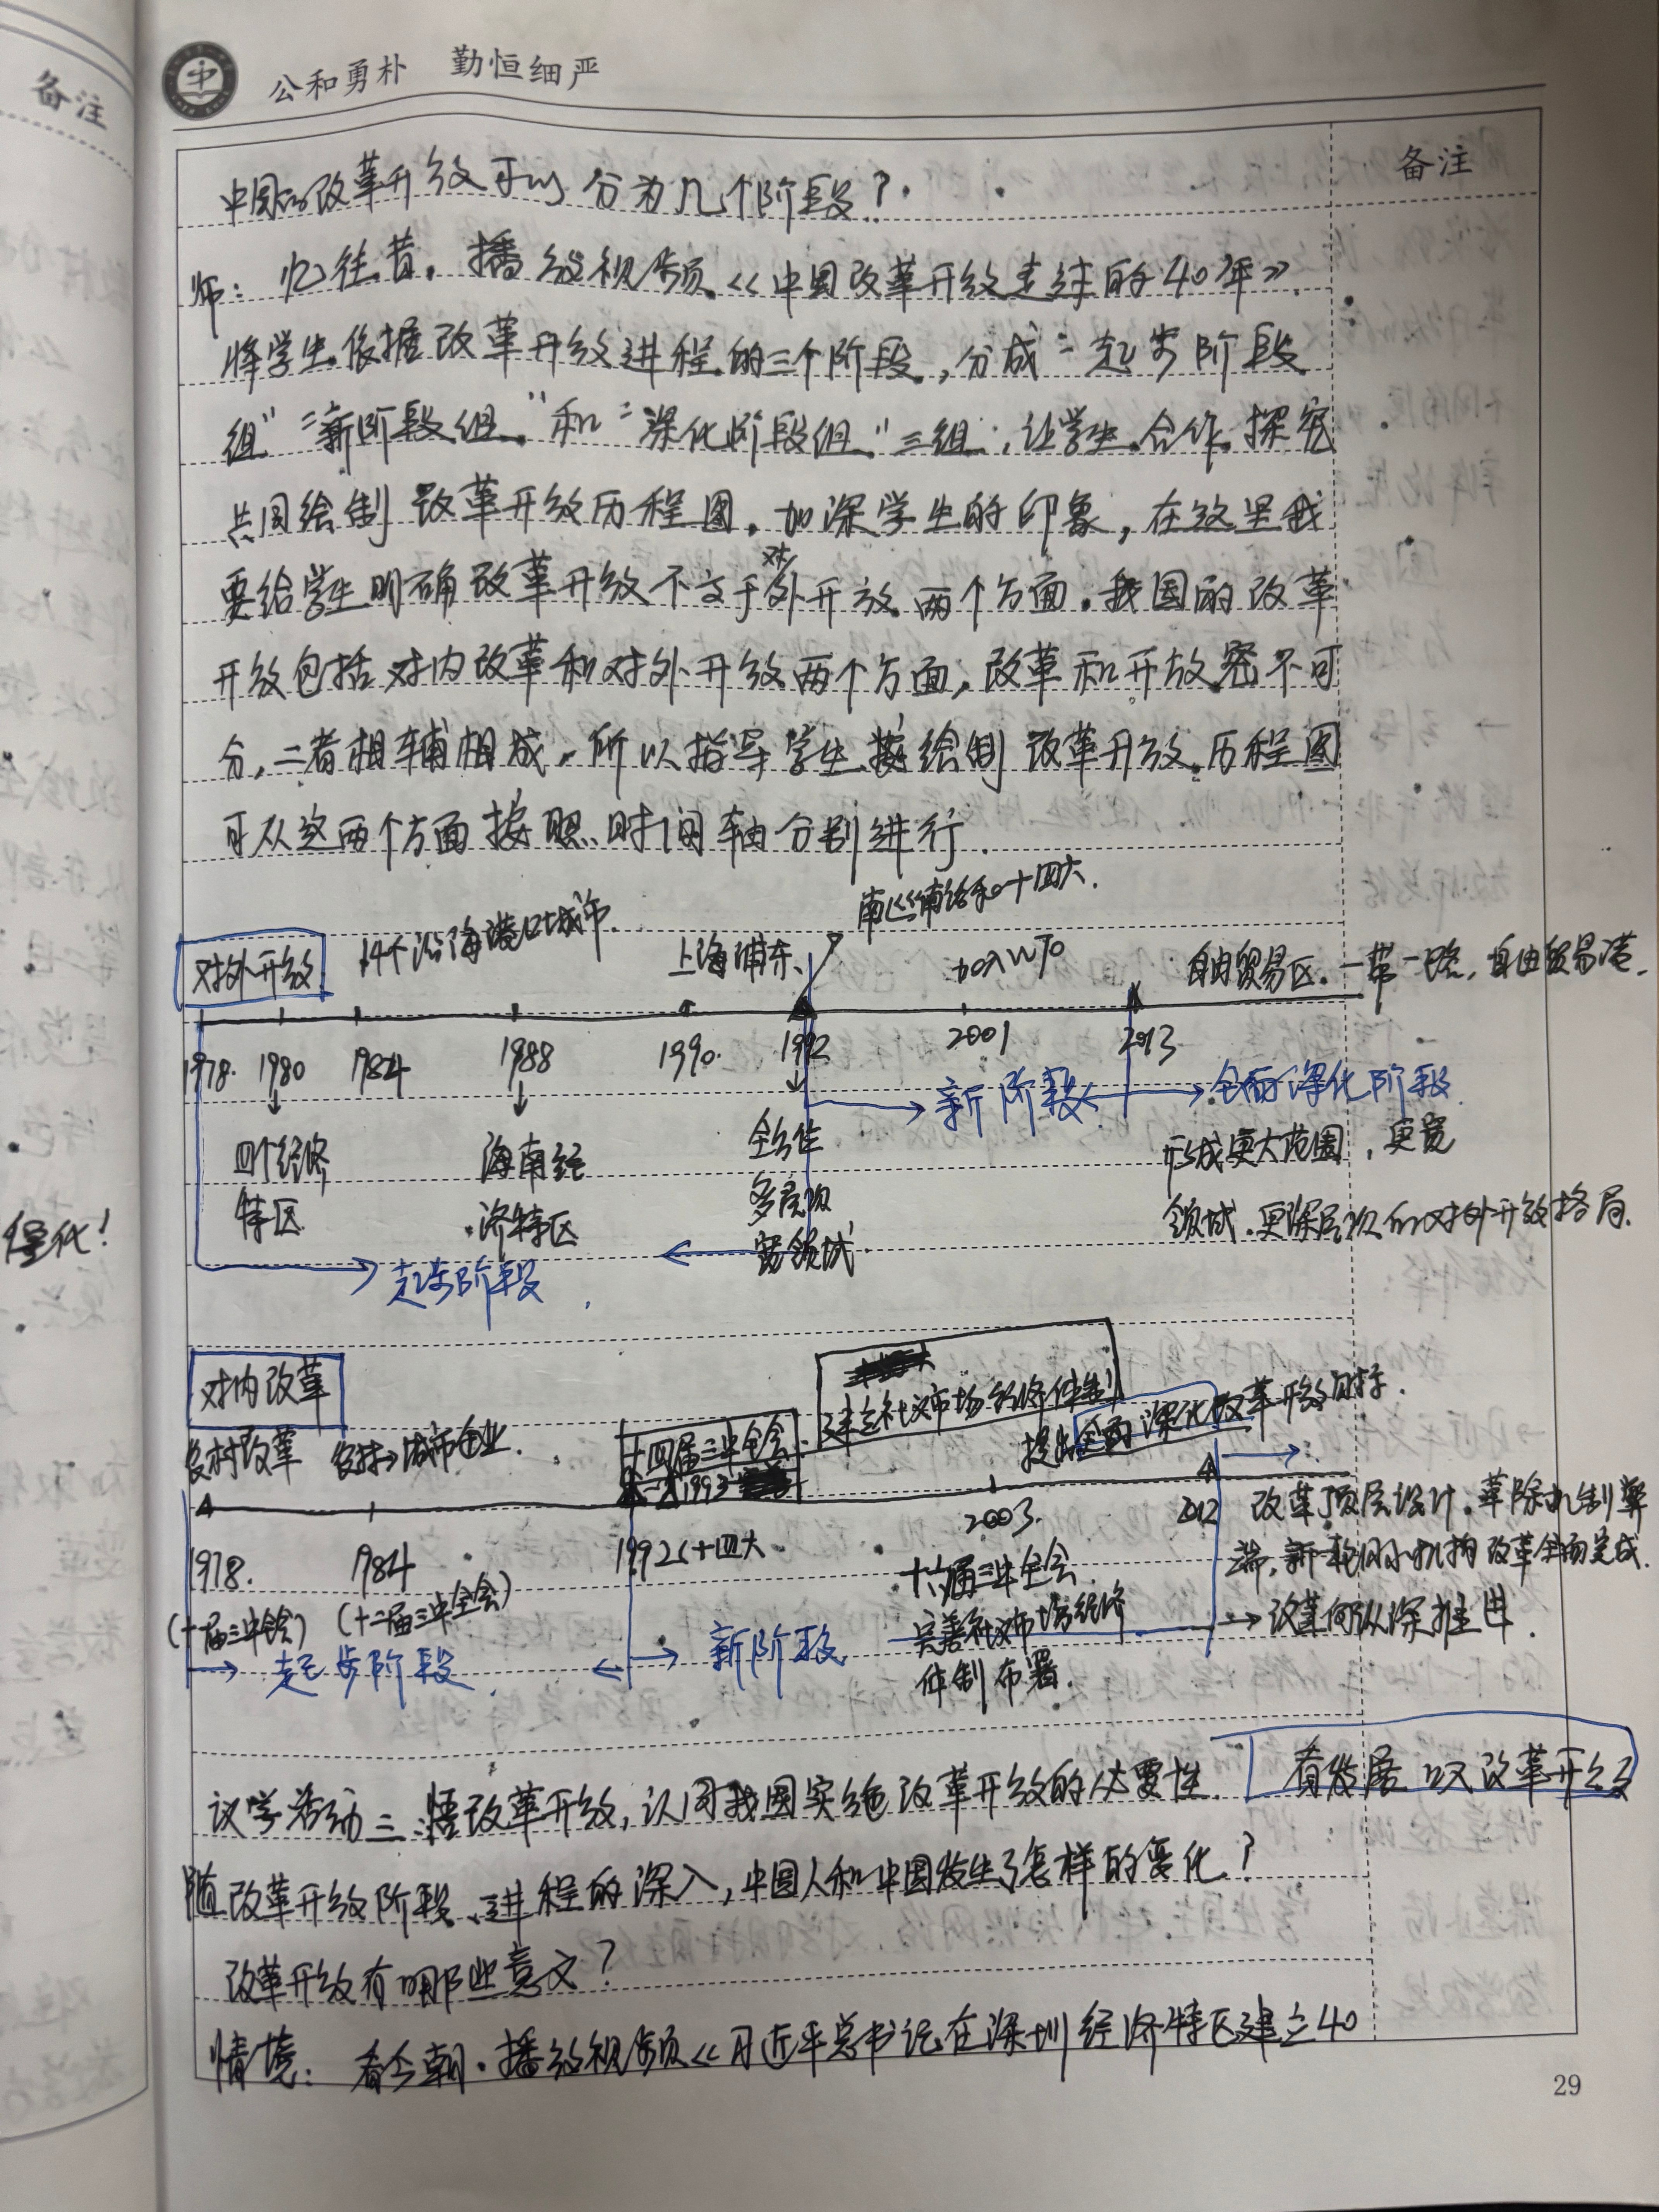 备注
公和勇朴 勤恒细严
备注
中国的改革开放可以分为几个阶段？
师：忆往昔，播放视频《中国改革开放走过的40年》
将学生依据改革开放进程的三个阶段，分成“起步阶段
组”“新阶段组”和“深化阶段组”三组，让学生合作探究
共同绘制改革开放历程图，加深学生的印象，在这里我
要给学生明确改革开放不交于对外开放两个方面，我国的改革
开放包括对内改革和对外开放两个方面，改革和开放密不可
分，二者相辅相成，所以指导学生绘制改革开放历程图
可从这两个方面按照时间轴分别进行．
南巡讲话和十四大．
对外开放
14个沿海港口城市．
上海浦东、
加入WTO
自由贸易区．一带一路，自由贸易港．
1978． 1980 1984 1988 1990． 1992 2001 2013
新阶段
全面深化阶段
四个经济
特区
海南经
济特区
全方位
多层次
宽领域
形成更大范围，更宽
领域．更深层次的对外开放格局．
起步阶段
对内改革
建立社义市场经济体制
提出全面深化改革开放目标．
农村改革
农村→城市企业．
十四届三中全会
1993
1978．
(十一届三中全会)
1984
(十二届三中全会)
1992 十四大
2003．
十六届三中全会
完善社义市场经济
体制布署．
2012
改革顶层设计．革除机制弊
端，新一轮国家机构改革全面完成．
→改革向纵深推进．
起步阶段
新阶段
议学活动三：悟改革开放，认同我国实施改革开放的必要性．
看发展 叹改革开放
随改革开放阶段、进程的深入，中国人和中国发生了怎样的变化？
改革开放有哪些意义？
情境：看今朝．播放视频《习近平总书记在深圳经济特区建立40
29